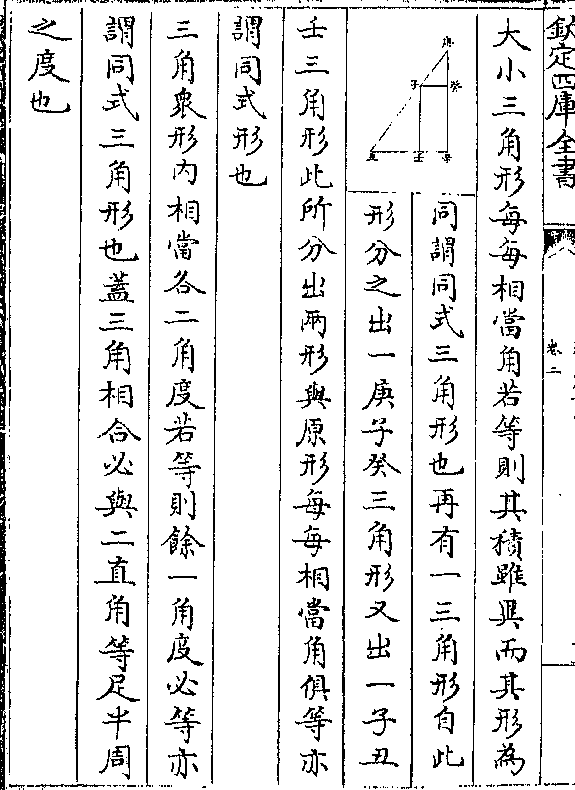 欽定四庫全書
卷二
大小三角形每每相當角若等則其積雖異而其形為
同謂同式三角形也再有一三角形自此
形分之出一庚子癸三角形又出一子丑
壬三角形此所分出兩形與原形每每相當角俱等亦
謂同式形也
三角衆形内相當各二角度若等則餘一角度必等亦
謂同式三角形也蓋三角相合必與二直角等足半周
之度也
庚
子
癸
丑
壬